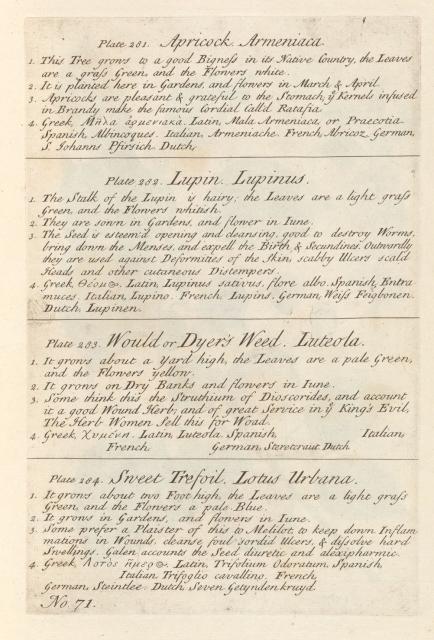 Plate 281. Apricock. Armeniaca.
1. This Tree grows to a good Bigneſs in its Native Country, the Leaves
are a graſs Green, and the Flowers white.
2. It is planted here in Gardens, and flowers in March & April.
3. Apricocks are pleasant & grateful to the Stomach, ÿ Kernels infused
in Brandy make the famous Cordial Call'd Ratafia.
4. Greek, Μηλα ἀρμενιακα. Latin, Mala Armeniaca, or Præcotia.
Spanish, Albincoques. Italian, Armeniache. French, Abricoz, German,
S. Johanns Pfirsich. Dutch,
Plate 282. Lupin. Lupinus.
1. The Stalk of the Lupin is hairy, the Leaves are a light graſs
Green, and the Flowers whitish.
2. They are sown in Gardens, and flower in Iune.
3. The Seed is esteem'd opening and cleansing, good to destroy Worms,
bring down the Menses, and expell the Birth & Secundines. Outwardly
they are used against Deformities of the Skin, scabby Ulcers scald
Heads and other cutaneous Distempers.
4. Greek, Θέρμ Latin, Lupinus sativus, flore albo. Spanish, Entra
muces. Italian, Lupino. French, Lupins. German, Weiſs Feigbonen.
Dutch, Lupinen.
Plate 283. Would or Dyer's Weed. Luteola.
1. It grows about a Yard high, the Leaves are a pale Green,
and the Flowers yellow.
2. It grows on Dry Banks and flowers in Iune.
3. Some think this the Struthium of Dioscorides, and account
it a good Wound Herb, and of great Service in ÿ King's Evil,
The Herb Women Sell this for Woad.
4. Greek, Latin, Luteola. Spanish, Italian,
French, German, Sterotcraut. Dutch
Plate 284. Sweet Trefoil. Lotus Urbana.
1. It grows about two Foot high, the Leaves are a light graſs
Green, and the Flowers a pale Blue.
2. It grows in Gardens, and flowers in Iune.
3. Some prefer a Plaister of this to Melilot, to keep down Inflam
mations in Wounds, cleanse foul sordid Ulcers, & diſsolve hard
Swellings. Galen accounts the Seed diuretic and alexipharmic.
4. Greek, Λοτὸς Latin, Trifolium Odoratum. Spanish,
Italian, Trifoglio cavallino. French,
German, Steintlee. Dutch, Seven Getyndenkruyd.
No. 71.